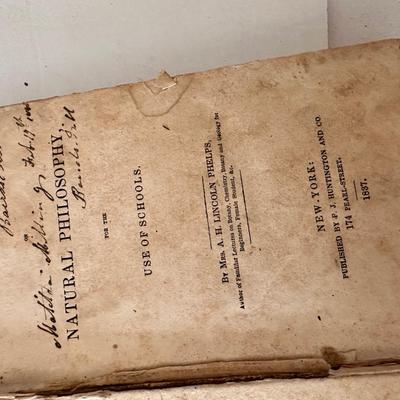 Feb. 19th
Matilda
OR
NATURAL PHILOSOPHY,
FOR THE
USE OF SCHOOLS.
BY MRS. A. H. LINCOLN PHELPS,
Author of Familiar Lectures on Botany, Chemistry, Botany and Geology for
Beginners, Female Student, &c.
NEW-YORK:
PUBLISHED BY F. J. HUNTINGTON AND CO.
174 PEARL-STREET.
1837.